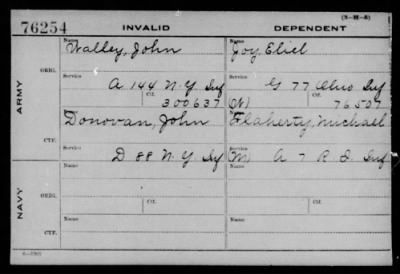 (3-H-5)
76254 INVALID DEPENDENT
Name Name
Walley, John Joy, Eliel
ARMY
ORIG.
Service Service
A 144 N.Y. Inf G 77 Ohio Inf
Ctf. Ctf.
300637 (W) 76507
Name Name
Donovan, John Flaherty, Michael
CTF.
Service Service
D 88 N.Y. Inf (M) A 7 R.I. Inf
NAVY
Name Name
ORIG.
Service Ctf. Service Ctf.
Name Name
CTF.
Service Service